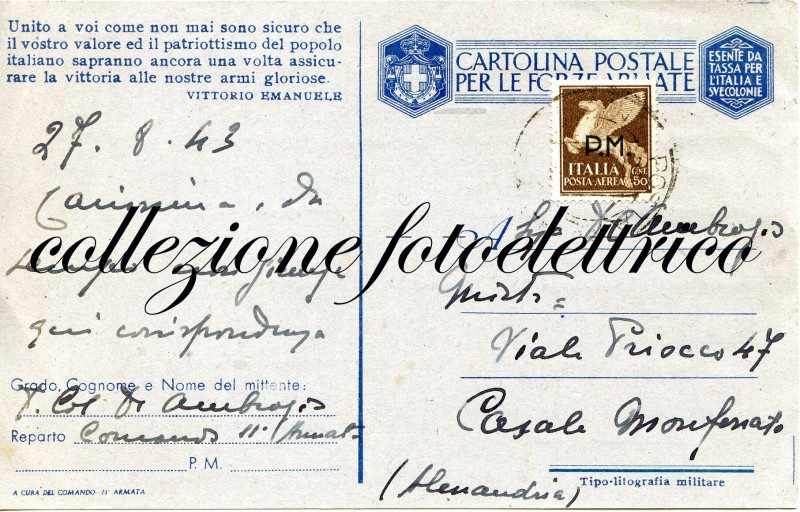 Unito a voi come non mai sono sicuro che
il vostro valore ed il patriottismo del popolo
italiano sapranno ancora una volta assicu-
rare la vittoria alle nostre armi gloriose.
VITTORIO EMANUELE
CARTOLINA POSTALE
PER LE FORZE ARMATE
ESENTE DA
TASSA PER
L'ITALIA E
SVE COLONIE
P.M.
ITALIA
POSTA AEREA
CENT.
50
27. 8. 43
Carissima, da
tempo non giunge
qui corrispondenza
collezione fotoelettrico
A
De Ambrogis
Viale Priocco 47
Casale Monferrato
(Alessandria)
Grado, Cognome e Nome del mittente:
T. Col De Ambrogis
Reparto Comando 11ª Armata
P. M.
A CURA DEL COMANDO 11ª ARMATA
Tipo-litografia militare